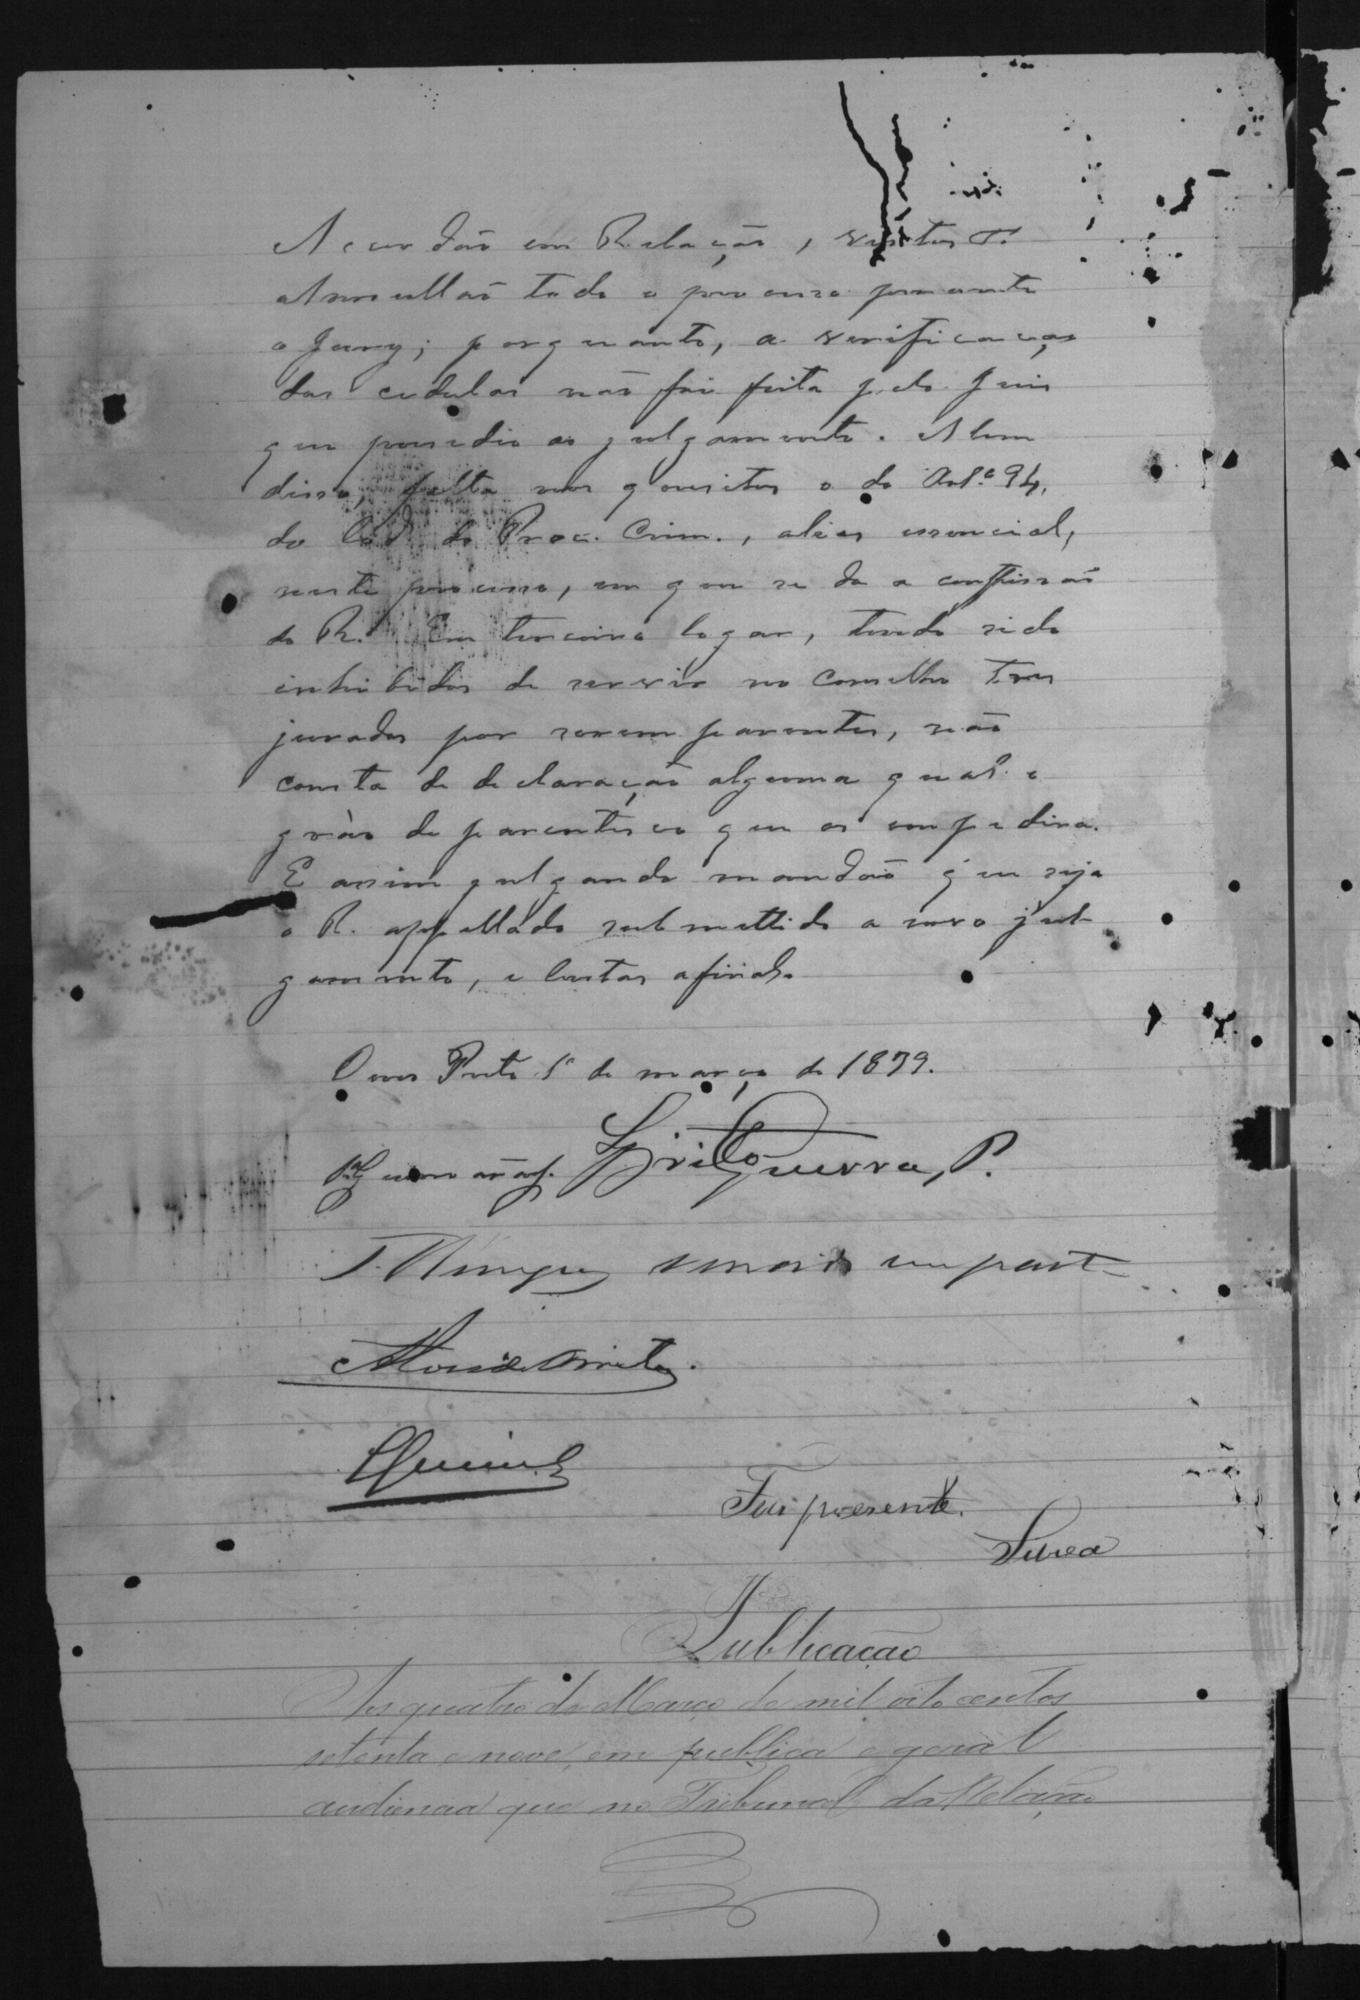 Accordão em Relação, vistos &.
Annullão todo o processo perante
o Jury; porquanto, a verificação
das cedulas não foi feita pelo Juis
que presedio ao julgamento. Alem
disso, falta nos quesitos o do Art.º 94,
do Cod. do Proc. Crim., alias essencial,
neste processo, em que se da a confissão
do R. Em terceiro logar, tendo sido
inhibidos de servir no Conselho tres
jurados por serem parentes, não
consta de declaração alguma qual o
gráo de parentesco que os empedira.
E assim julgando mandão que seja
o R. appellado submettido a novo jul-
gamento, e Custas afinal.
Ouro Preto 1º de março de 1879.
Brito Guerra, P.
vencido em parte
Fui presente.
Publicação
Aos quatro de Março de mil oito centos
setenta e nove, em publica e geral
audiencia que no Tribunal da Relação